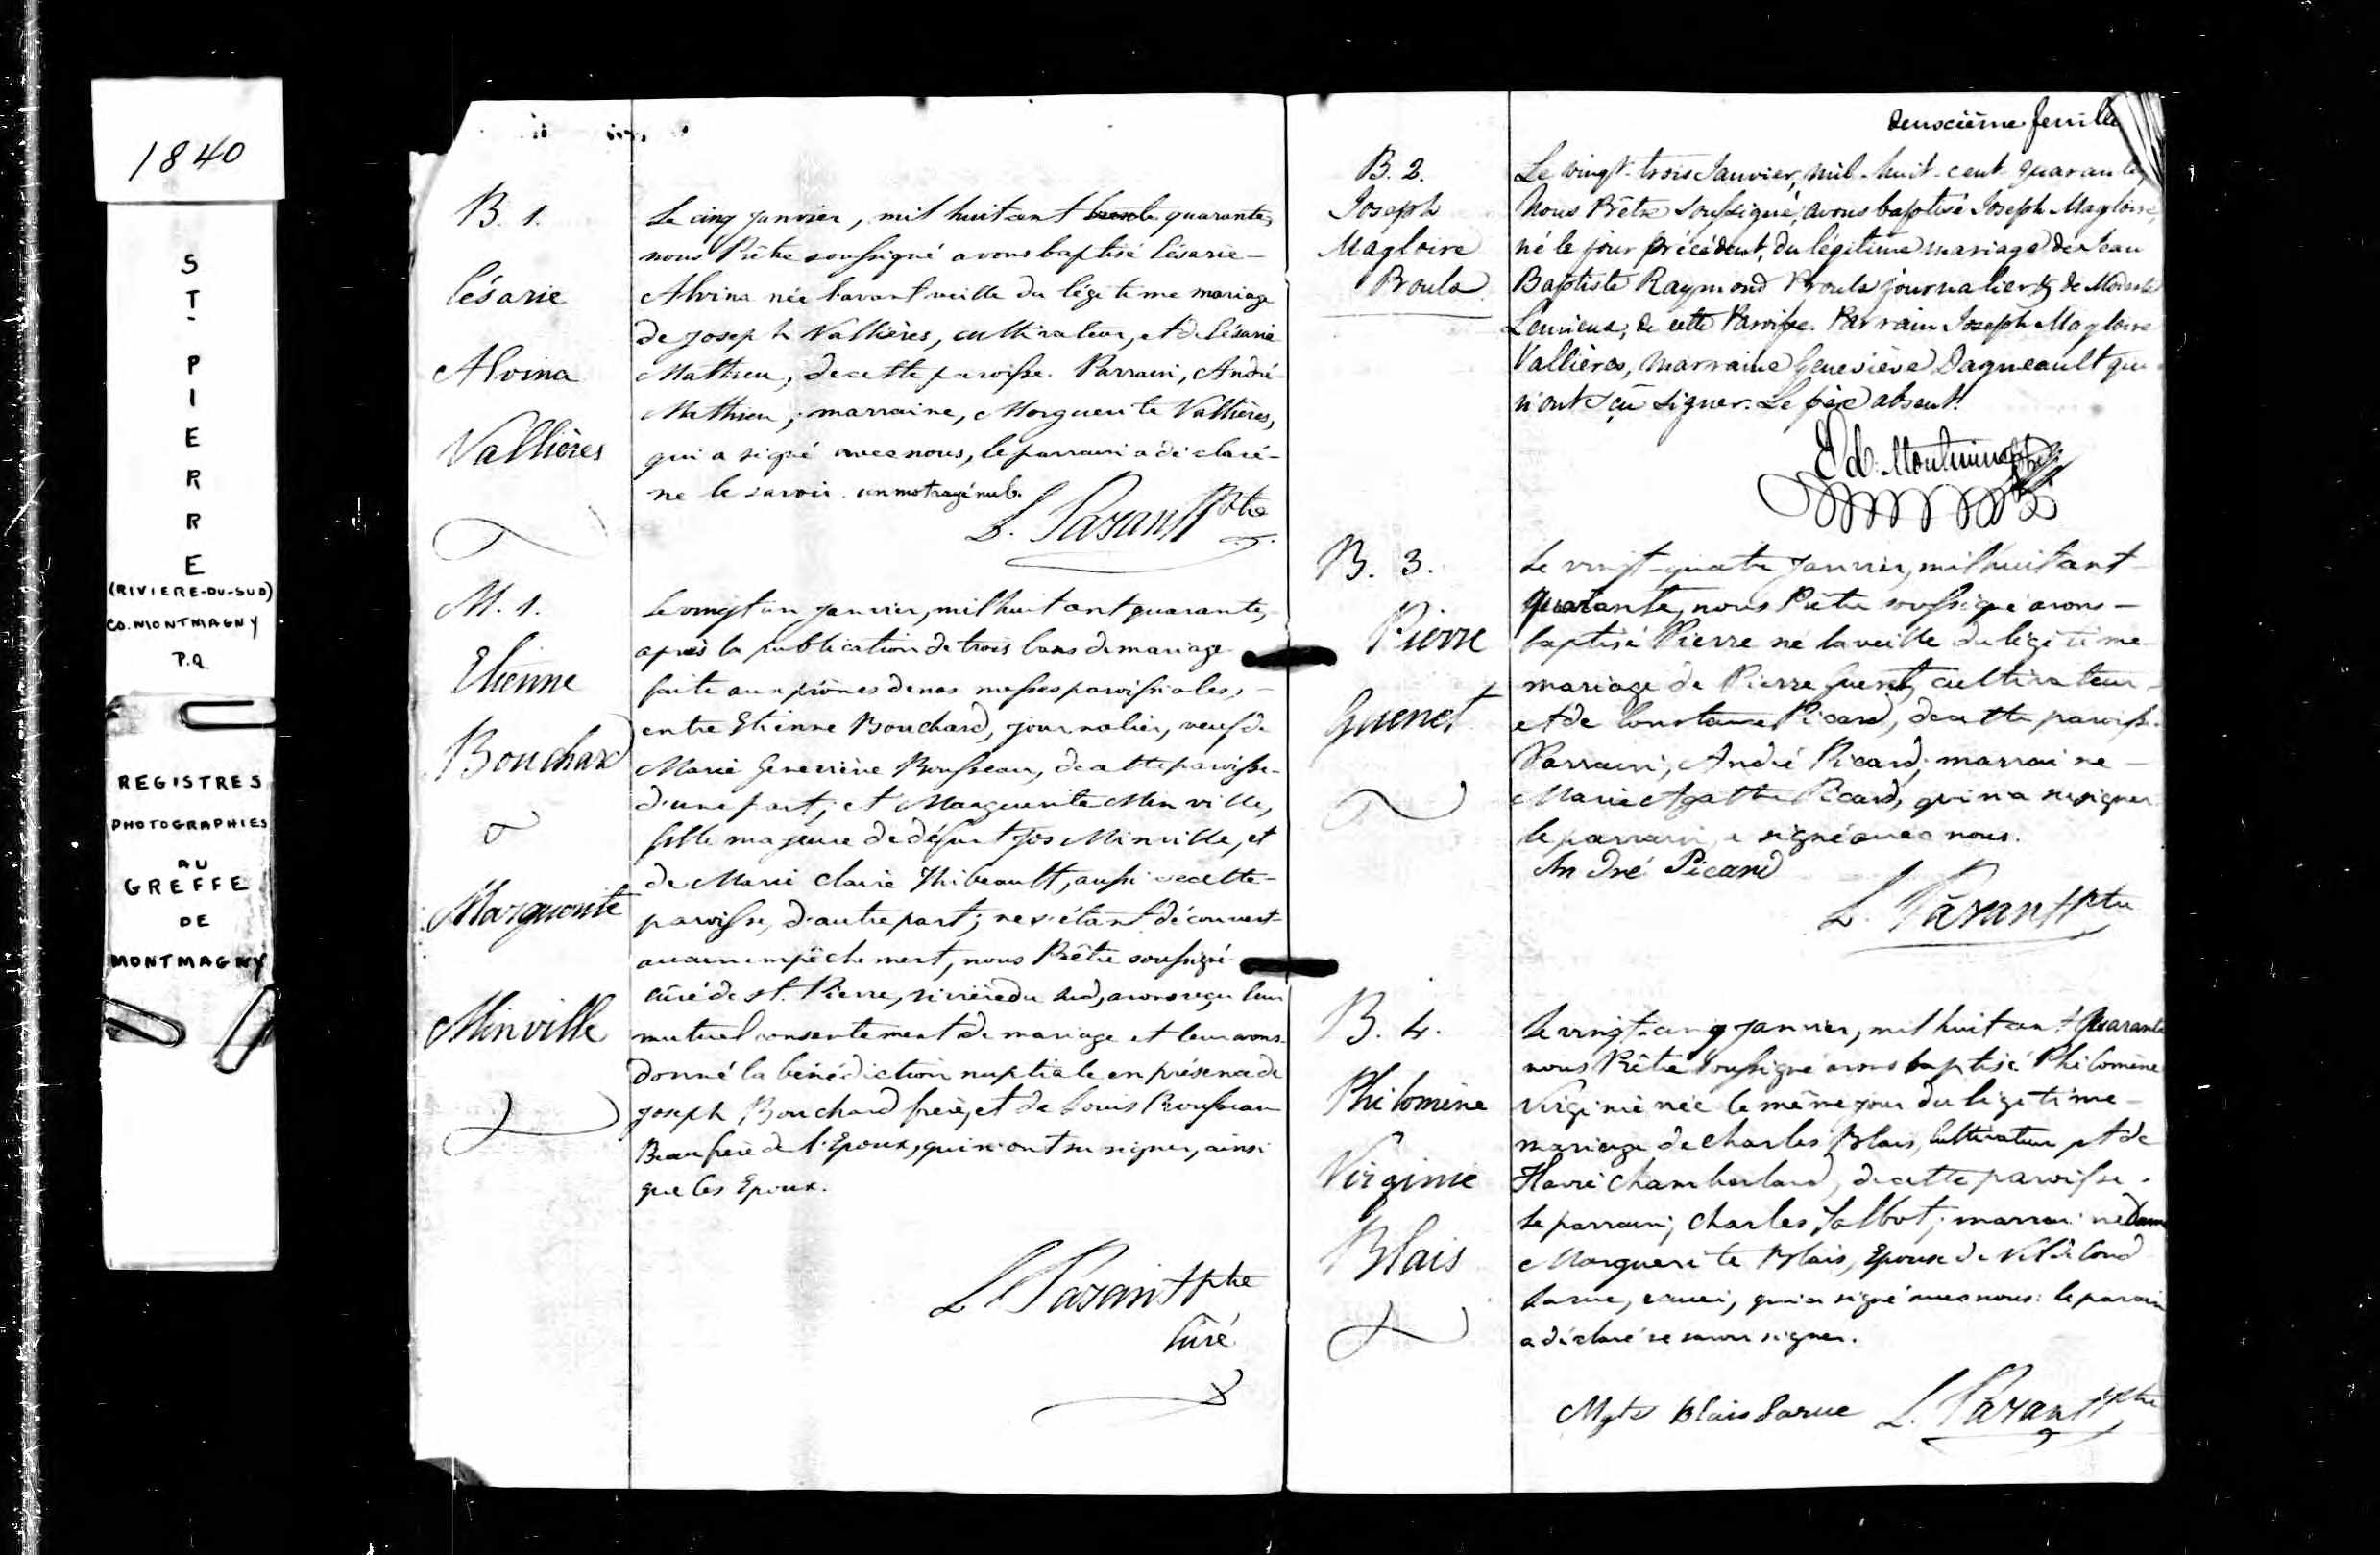 1840
ST-PIERRE
(RIVIERE-DU-SUD)
CO. MONTMAGNY
P.Q
REGISTRES
PHOTOGRAPHIES
AU
GREFFE
DE
MONTMAGNY
B. 1.
Césarie
Alvina
Vallières
Le cinq janvier, mil huit cent trente quarante,
nous Prêtre soussigné avons baptisé Césarie-
Alvina née l'avant veille du légitime mariage
de Joseph Vallières, cultivateur, et de Césarie
Mathieu, de cette paroisse. Parrain, André-
Mathieu, marraine, Marguerite Vallières,
qui a signé avec nous, le parrain a déclaré-
ne le savoir. un mot rayé nul.
L. Parant Ptre
M. 1.
Etienne
Bouchard
&
Marguerite
Minville
Le vingt un janvier, mil huit cent quarante,
après la publication de trois bans de mariage
faite aux prônes de nos messes paroissiales,-
entre Etienne Bouchard, journalier, veuf de
Marie Geneviève Rousseau, de cette paroisse-
d'une part; et Marguerite Minville,
fille majeure de défunt Jos Minville, et
de Marie Claire Thibeault, aussi de cette-
paroisse, d'autre part; ne s'étant découvert-
aucun empêchement, nous Prêtre soussigné-
curé de St. Pierre, rivière du Sud, avons reçu leur
mutuel consentement de mariage et leur avons-
donné la bénédiction nuptiale en présence de
Joseph Bouchard frère, et de Louis Rousseau
Beaufrère de l'Epoux, qui n'ont su signer, ainsi
que les Epoux.
L Parant Ptre
Curé
Deuxième feuille
B. 2.
Joseph
Magloire
Proulx
Le vingt-trois Janvier, mil-huit-cent-quarante,
Nous Prêtre Soussigné, avons baptisé Joseph Magloire,
né le jour précédent, du légitime mariage de Jean
Baptiste Raymond Proulx journalier & de Modeste
Lemieux, de cette Paroisse. Parrain Joseph Magloire
Vallières, Marraine Geneviève Dagneault qui
n'ont sçu signer. Le père absent.
Ed. Montminy Ptre
B. 3.
Pierre
Guenet
Le vingt-quatre janvier, mil huit cent-
quarante, nous Prêtre soussigné avons-
baptisé Pierre né la veille du légitime-
mariage de Pierre Guenet, cultivateur-
et de Constance Picard, de cette paroisse.
Parrain, André Picard, marraine-
Marie Agathe Picard, qui n'a su signer
le parrain a signé avec nous.
André Picard
L. Parant Ptre
B. 4.
Philomène
Virginie
Blais
Le vingt-cinq janvier, mil huit cent Quarante
nous Prêtre Soussigné avons baptisé Philomène
Virginie née le même jour du légitime-
mariage de Charles Blais, cultivateur et de
Flavie Chamberland, de cette paroisse.
Le parrain, Charles Talbot; marraine Dame
Marguerite Blais, Epouse de
Larue, qui a signé avec nous: le parrain
a déclaré ne savoir signer.
Mgte Blais Larue
L. Parant Ptre